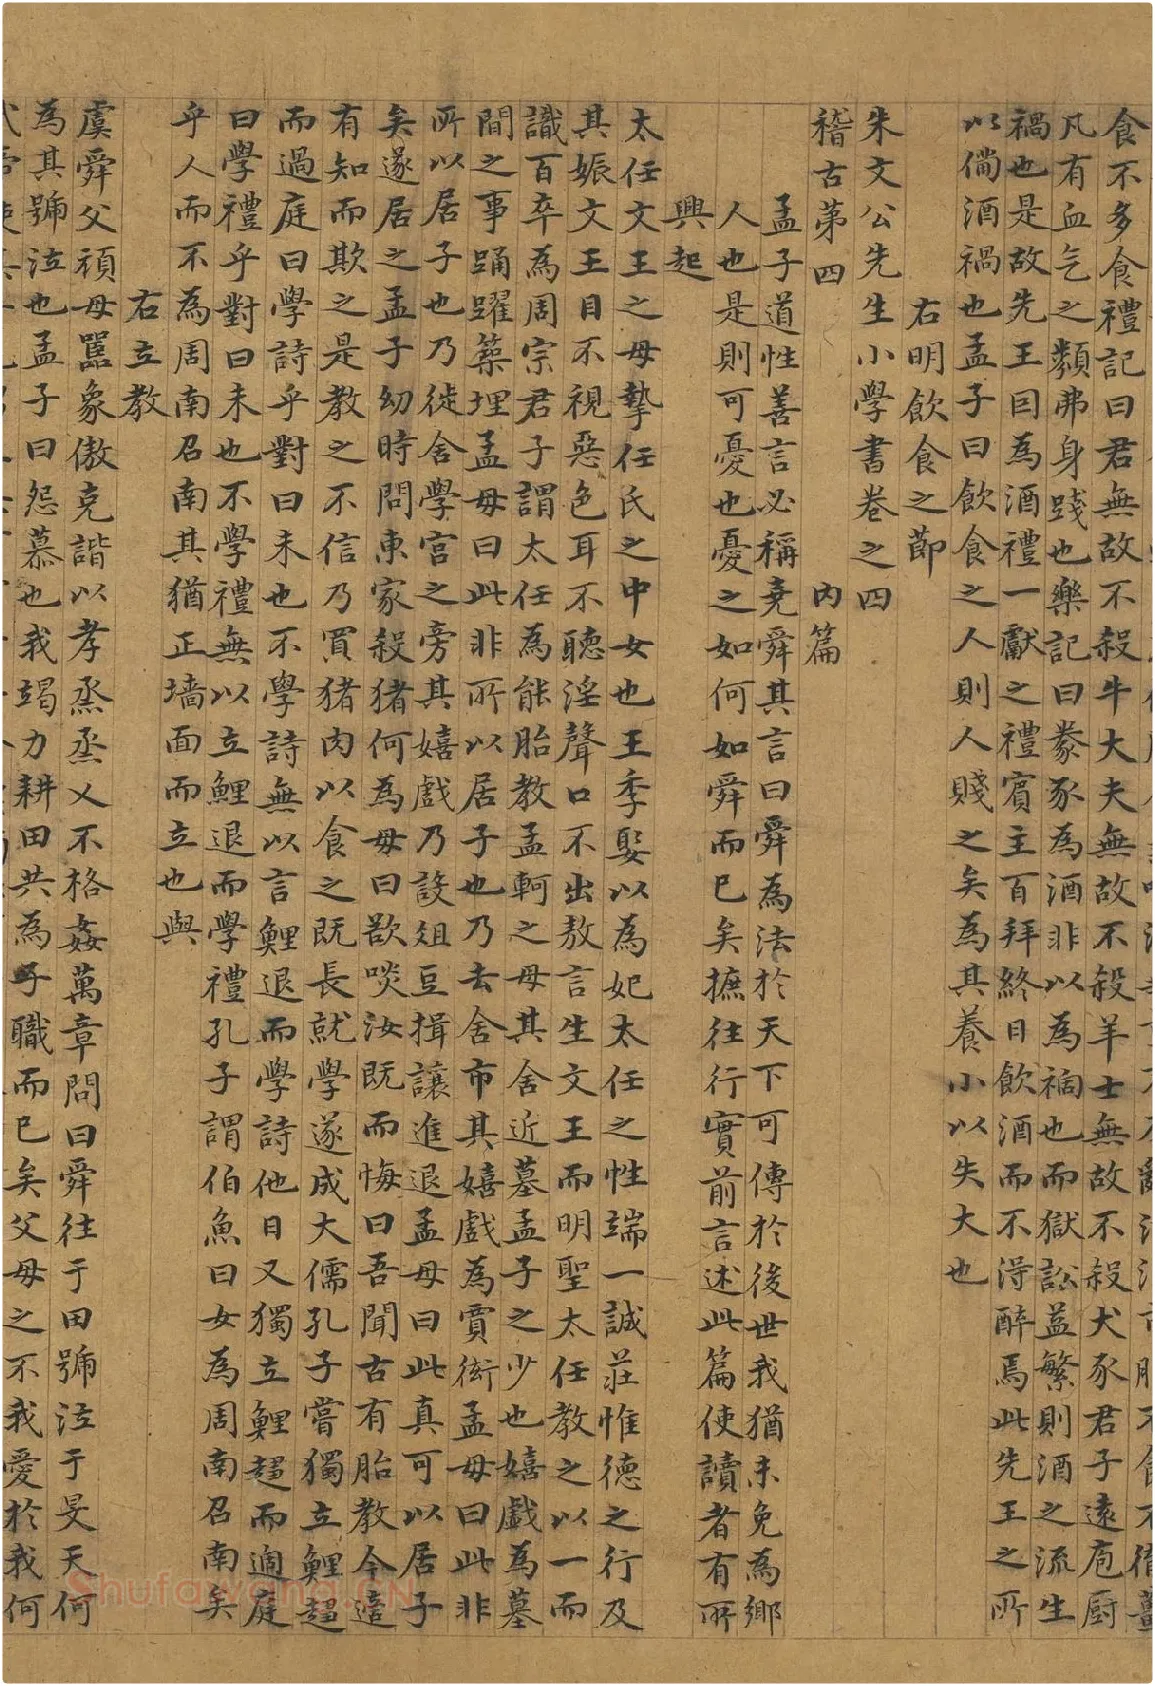 食不多食禮記曰君無故不殺牛大夫無故不殺羊士無故不殺犬豕君子遠庖厨
凡有血气之類弗身踐也樂記曰豢豕為酒非以為禍也而獄訟益繁則酒之流生
禍也是故先王因為酒禮一獻之禮賓主百拜終日飲酒而不得醉焉此先王之所
以備酒禍也孟子曰飲食之人則人賤之矣為其養小以失大也
右明飲食之節
朱文公先生小學書卷之四
稽古第四 內篇
孟子道性善言必稱堯舜其言曰舜為法於天下可傳於後世我猶未免為鄉
人也是則可憂也憂之如何如舜而已矣摭往行實前言述此篇使讀者有所
興起
太任文王之母摯任氏之中女也王季娶以為妃太任之性端一誠莊惟德之行及
其娠文王目不視惡色耳不聽淫聲口不出敖言生文王而明聖太任教之以一而
識百卒為周宗君子謂太任為能胎教孟軻之母其舍近墓孟子之少也嬉戲為墓
間之事踊躍築埋孟母曰此非所以居子也乃去舍市其嬉戲為賈衒孟母曰此非
所以居子也乃徙舍學宮之旁其嬉戲乃設俎豆揖讓進退孟母曰此真可以居子
矣遂居之孟子幼時問東家殺猪何為母曰欲啖汝既而悔曰吾聞古有胎教今適
有知而欺之是教之不信乃買猪肉以食之既長就學遂成大儒孔子嘗獨立鯉趨
而過庭曰學詩乎對曰未也不學詩無以言鯉退而學詩他日又獨立鯉趨而過庭
曰學禮乎對曰未也不學禮無以立鯉退而學禮孔子謂伯魚曰女為周南召南矣
乎人而不為周南召南其猶正墻面而立也與
右立教
虞舜父頑母嚚象傲克諧以孝烝烝乂不格姦萬章問曰舜往于田號泣于旻天何
為其號泣也孟子曰怨慕也我竭力耕田共為子職而已矣父母之不我愛於我何
Shufawang.CN